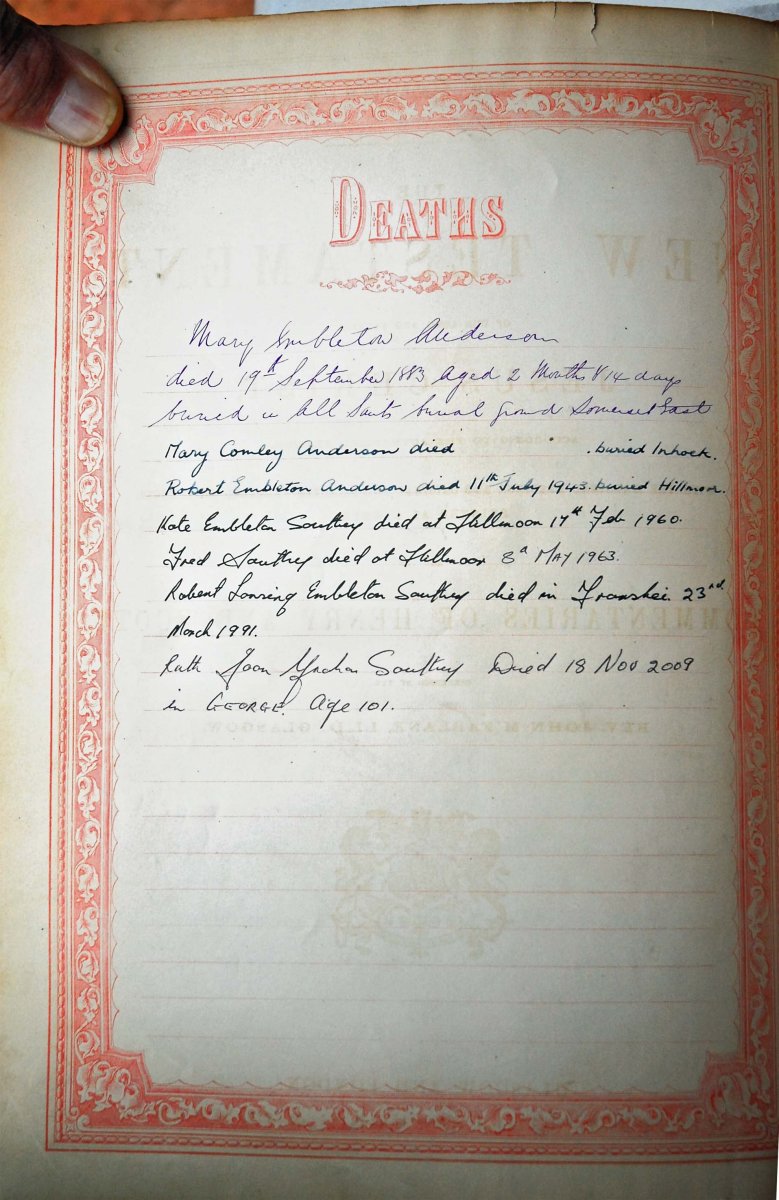 DEATHS
Mary Embleton Anderson
died 19th September 1883 aged 2 Months & 14 days
buried in All Saints burial ground Somerset East
Mary Comley Anderson died . buried Inhoek.
Robert Embleton Anderson died 11th July 1943. buried Hillmoor.
Kate Embleton Southey died at Hillmoor 17th Feb 1960.
Fred Southey died at Hillmoor 8th MAY 1963.
Robert Embleton Southey died in Transkei 23rd
March 1991.
Ruth Joan Southey Died 18 Nov 2009
in GEORGE. Age 101.